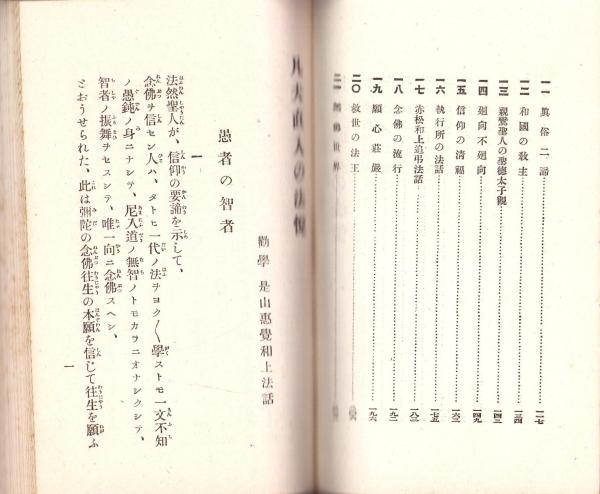 一一 眞俗二諦……一二七
一二 和國の敎主……一三四
一三 親鸞聖人の聖德太子觀……一四三
一四 廻向不廻向……一四九
一五 信仰の淸福……一六三
一六 執行所の法話……一七五
一七 赤松和上追弔法話……一八三
一八 念佛の流行……一九二
一九 願心莊嚴……一九六
二〇 救世の法王
勸學 是山惠覺和上法話
愚者の智者
一
法然聖人が、信仰の要諦を示して、
念佛ヲ信セン人ハ、タトヒ一代ノ法ヲヨク〱學ストモ一文不知
ノ愚鈍ノ身ニナシテ、尼入道ノ無智ノトモカラニオナシクシテ、
智者ノ振舞ヲセスシテ、唯一向ニ念佛スヘシ、
とおうせられた、此は彌陀の念佛往生の本願を信じて往生を願ふ
一